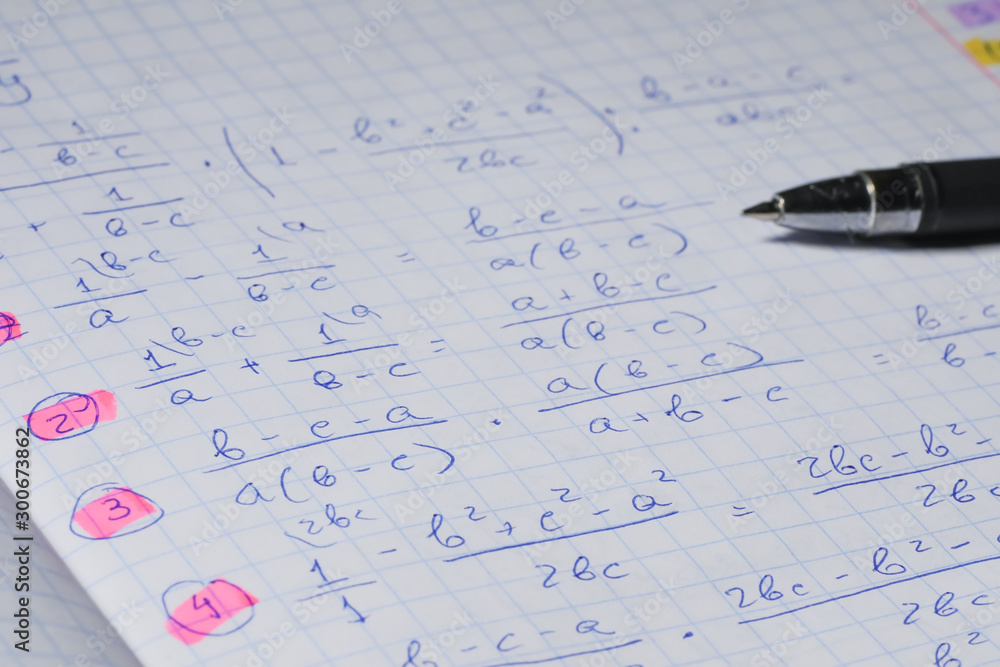 1/(b-c) · (1 - (b² + c² - a²)/2bc) : (b-a-c)/
+ 1/(b-c)
1\b-c/a - 1\a/(b-c) = (b-c-a)/a(b-c)
2) 1\b-c/a + 1\a/(b-c) = (a+b-c)/a(b-c)
3 (b-c-a)/a(b-c) · a(b-c)/(a+b-c) = (b-c
4) 1\2bc/1 - (b² + c² - a²)/2bc = (2bc - b² -/2bc
b-c-a · (2bc - b² -/2bc
b²
Adobe Stock | #300673862